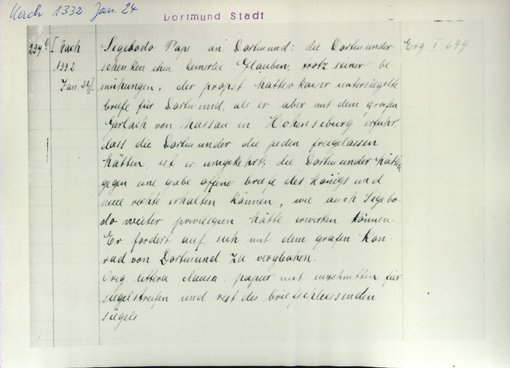 Nach 1332 Jan. 24
Dortmund Stadt
234 c [Nach 1332 Jan 24].
Segebodo Pape an Dortmund: die Dortmunder
schenken ihm keinerlei Glauben, trotz seiner be
mühungen, der propst hatte kaiser untersiegelte
briefe für Dortmund, als er aber mit dem grafen
Gerlach von Nassau in Hohenseburg erfuhr,
dass die Dortmunder die juden freigelassen
hätten, ist er umgekehrt; die Dortmunder hätten
gegen eine gabe offene briefe des königs und
neue rechte erhalten können, wie auch Segebo
do weiter privilegien hätte erwirken können.
Er fordert auf, sich mit dem grafen Kon
rad von Dortmund zu vergleichen.
Orig littera clausa, papier mit einschnitten für
siegelstreifen und rest des briefschliessenden
siegels
Erg I 649